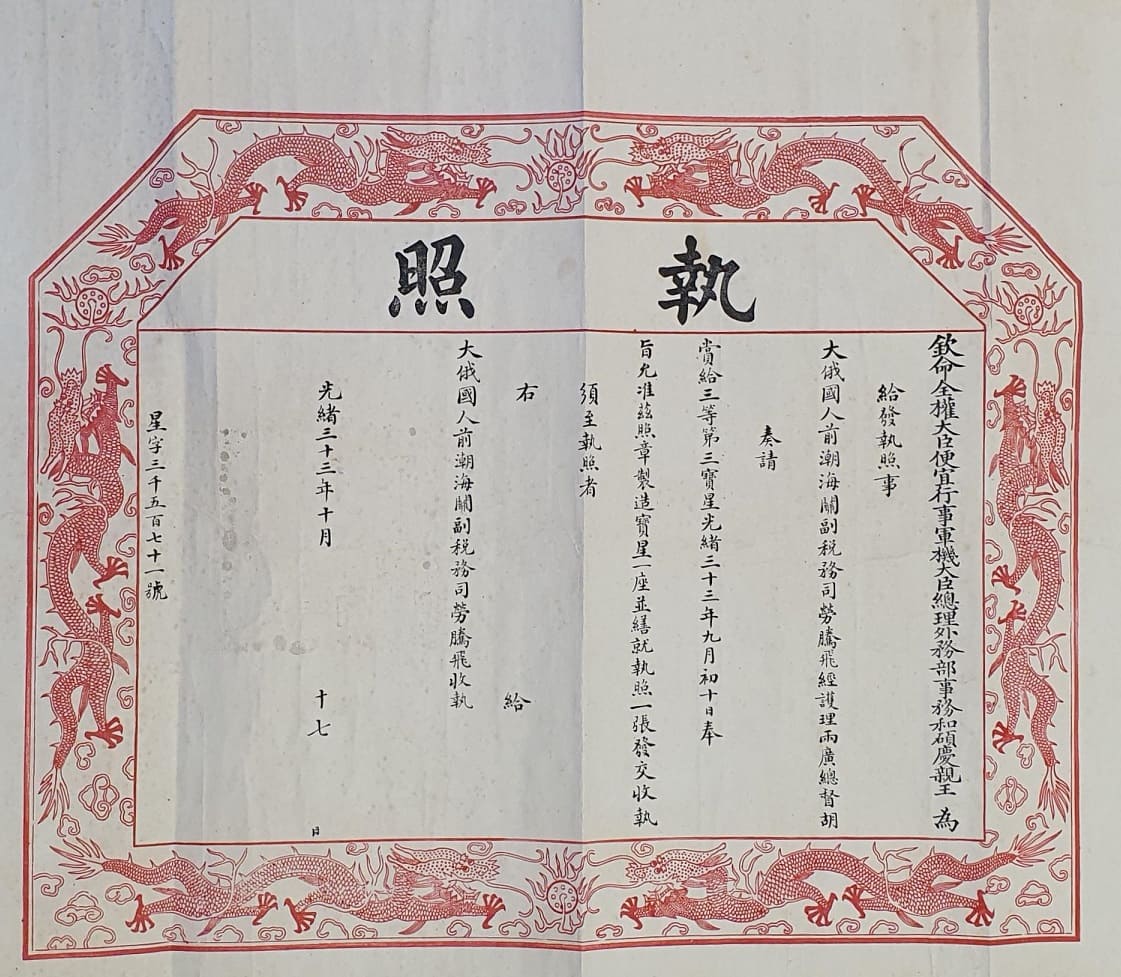 執照
欽命全權大臣便宜行事軍機大臣總理外務部事務和碩慶親王 為
給發執照事
大俄國人前潮海關副稅務司勞騰飛經護理兩廣總督胡
奏請
賞給三等第三寶星光緒三十三年九月初十日奉
旨允准茲照章製造寶星一座並繕就執照一張發交收執
須至執照者
右 給
大俄國人前潮海關副稅務司勞騰飛收執
光緒三十三年十月 十七 日
星字三千五百七十一號